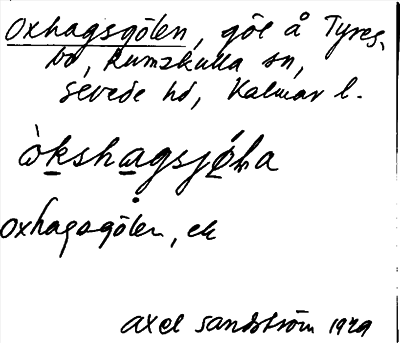 Oxhagsgölen, göl å Tyres-
bo, Rumskulla sn,
Sevede hd, Kalmar l.
òkshagsjǿla
Oxhagsgölen, ek
Axel Sandström 1929